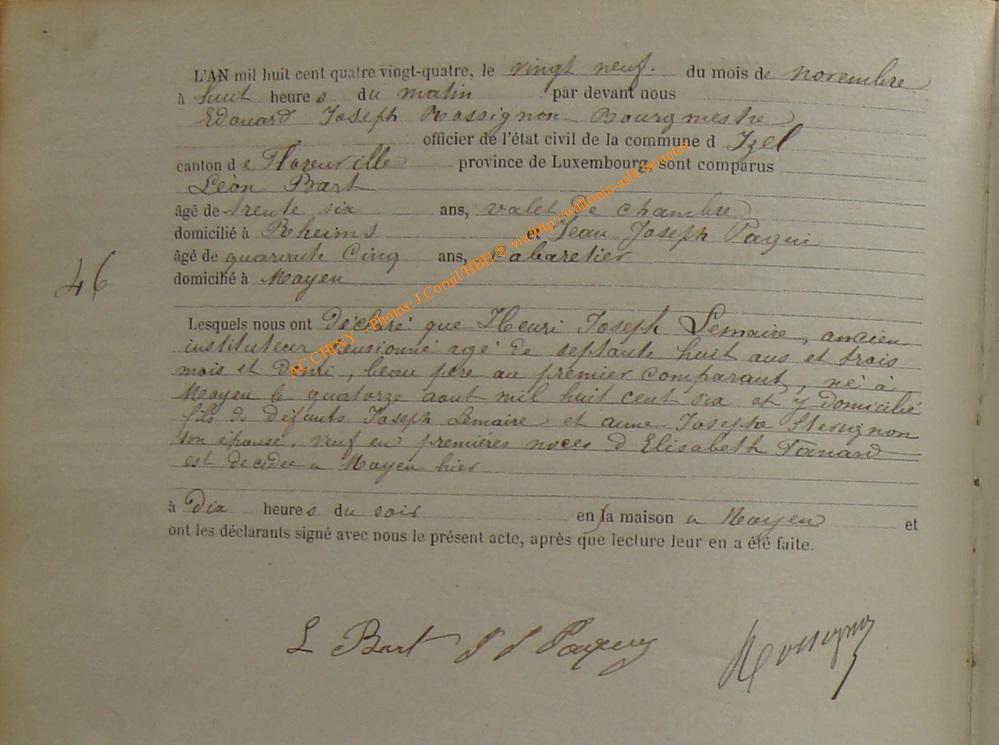 L'AN mil huit cent quatre vingt-quatre, le vingt neuf du mois de novembre
à huit heures du matin par devant nous
Edouard Joseph Rossignon Bourgmestre
officier de l'état civil de la commune d Izel
canton de Florenville province de Luxembourg, sont comparus
Léon Bart
âgé de trente six ans, valet de chambre
domicilié à Rheims et Jean Joseph Paqui
âgé de quarante Cinq ans, Cabaretier
domicilié à Moyen
46
Lesquels nous ont Déclaré que Henri Joseph Lemaire, ancien
instituteur pensionné agé de septante huit ans et trois
mois et demi, beau père au premier comparant, né à
Moyen le quatorze aout mil huit cent six et y domicilié
fils de défunts Joseph Lemaire et anne Josephe
son épouse, veuf en premières noces d'Elisabeth
est décédée a Moyen hier
à Dix heures du soir en la maison a Moyen et
ont les déclarants signé avec nous le présent acte, après que lecture leur en a été faite.
L Bart J J Paquy Rossignon
ACCHINY - Photos: J.Cornil/HBH® via http://wallonia-asbl.be/notes